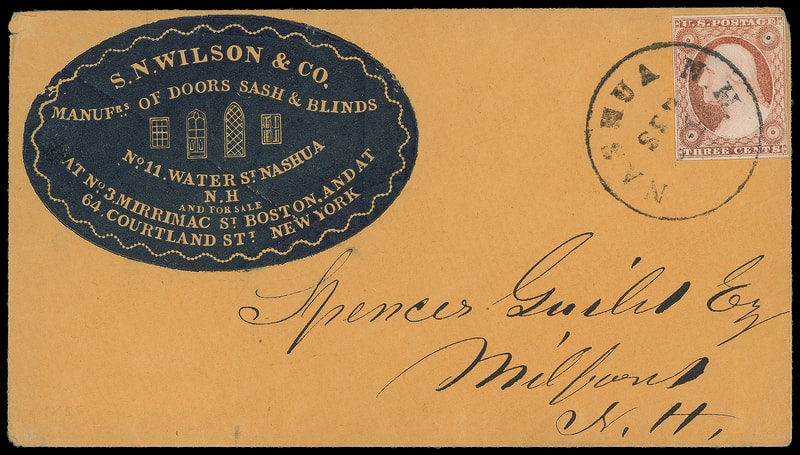 S.N.WILSON & CO.
MANUFRS. OF DOORS SASH & BLINDS
NO 11. WATER ST NASHUA
N.H
AND FOR SALE
AT NO 3. MIRRIMAC ST BOSTON, AND AT
64. COURTLAND STT NEW YORK
NASHUA N.H.
SEP
U.S. POSTAGE
THREE CENTS
Spencer Guild Esq
Milford
N. H.